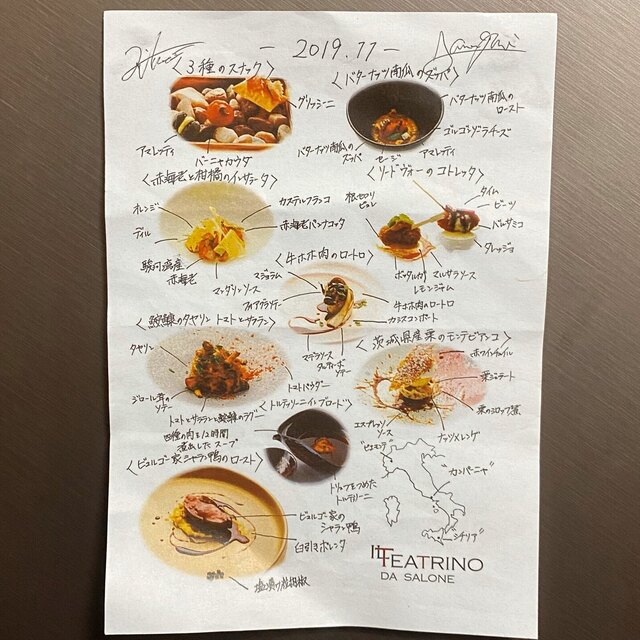 － 2019.11－
〈3種のスナック〉
グリッシーニ
アマレッティ
バーニャカウダ
〈バターナッツ南瓜のズッパ〉
バターナッツ南瓜の
ロースト
ゴルゴンゾーラチーズ
バターナッツ南瓜の
ズッパ
セージ
アマレッティ
〈赤海老と柑橘のインサラータ〉
オレンジ
カステルフランコ
ディル
赤海老パンナコッタ
駿河湾産
赤海老
マンダリンソース
〈リードヴォーのコトレッタ〉
根セロリ
ピュレ
タイム
ビーツ
バルサミコ
タレッジョ
ポルタルガ
マルサラソース
レモンチャーム
〈牛ホホ肉のロートロ〉
マジョラム
フォアグラソテー
牛ホホ肉のロートロ
カシスコンポート
マデラソース
〈鮟鱇のタヤリン トマトとサフラン〉
タヤリン
ジロール茸の
ソテー
トマトパウダー
トマトとサフランと鮟鱇のラグー
〈茨城県産栗のモンテビアンコ〉
ホワイトチョコレート
栗ジェラート
栗のシロップ煮
エスプレッソ
ソース
ナッツメレンゲ
〈トルテッリーニインブロード〉
四種の肉を12時間
煮出したスープ
トリュフをつめた
トルテリーニ
〈ビュルゴー家シャラン鴨のロースト〉
ビュルゴー家の
シャラン鴨
臼引きポレンタ
塩漬け粒胡椒
"ピエモンテ"
"カンパーニャ"
"シチリア"
IL TEATRINO
DA SALONE